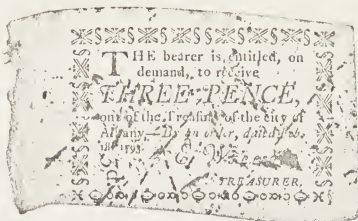 THE bearer is entitled, on
demand, to receive
THREE PENCE,
out of the Treasury of the city of
Albany.—By an order, dated Feb.
1793.
TREASURER,